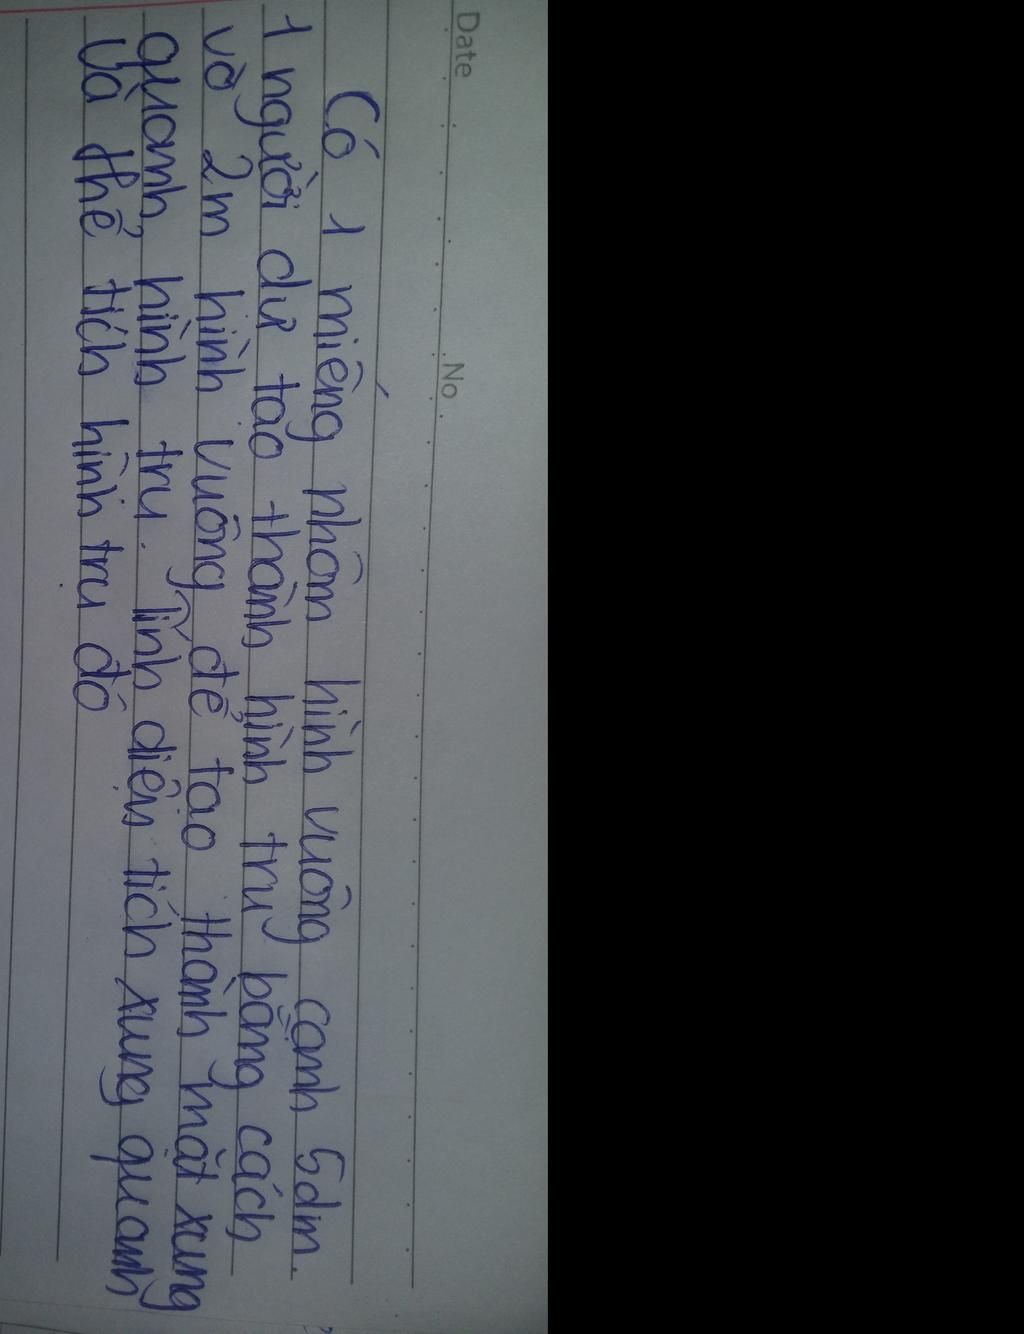 Date
No
Có 1 miếng nhôm hình vuông cạnh 5dm.
1 người dự tạo thành hình trụ bằng cách
vò 2m hình vuông để tạo thành mặt xung
quanh hình trụ. Tính diện tích xung quanh
và thể tích hình trụ đó